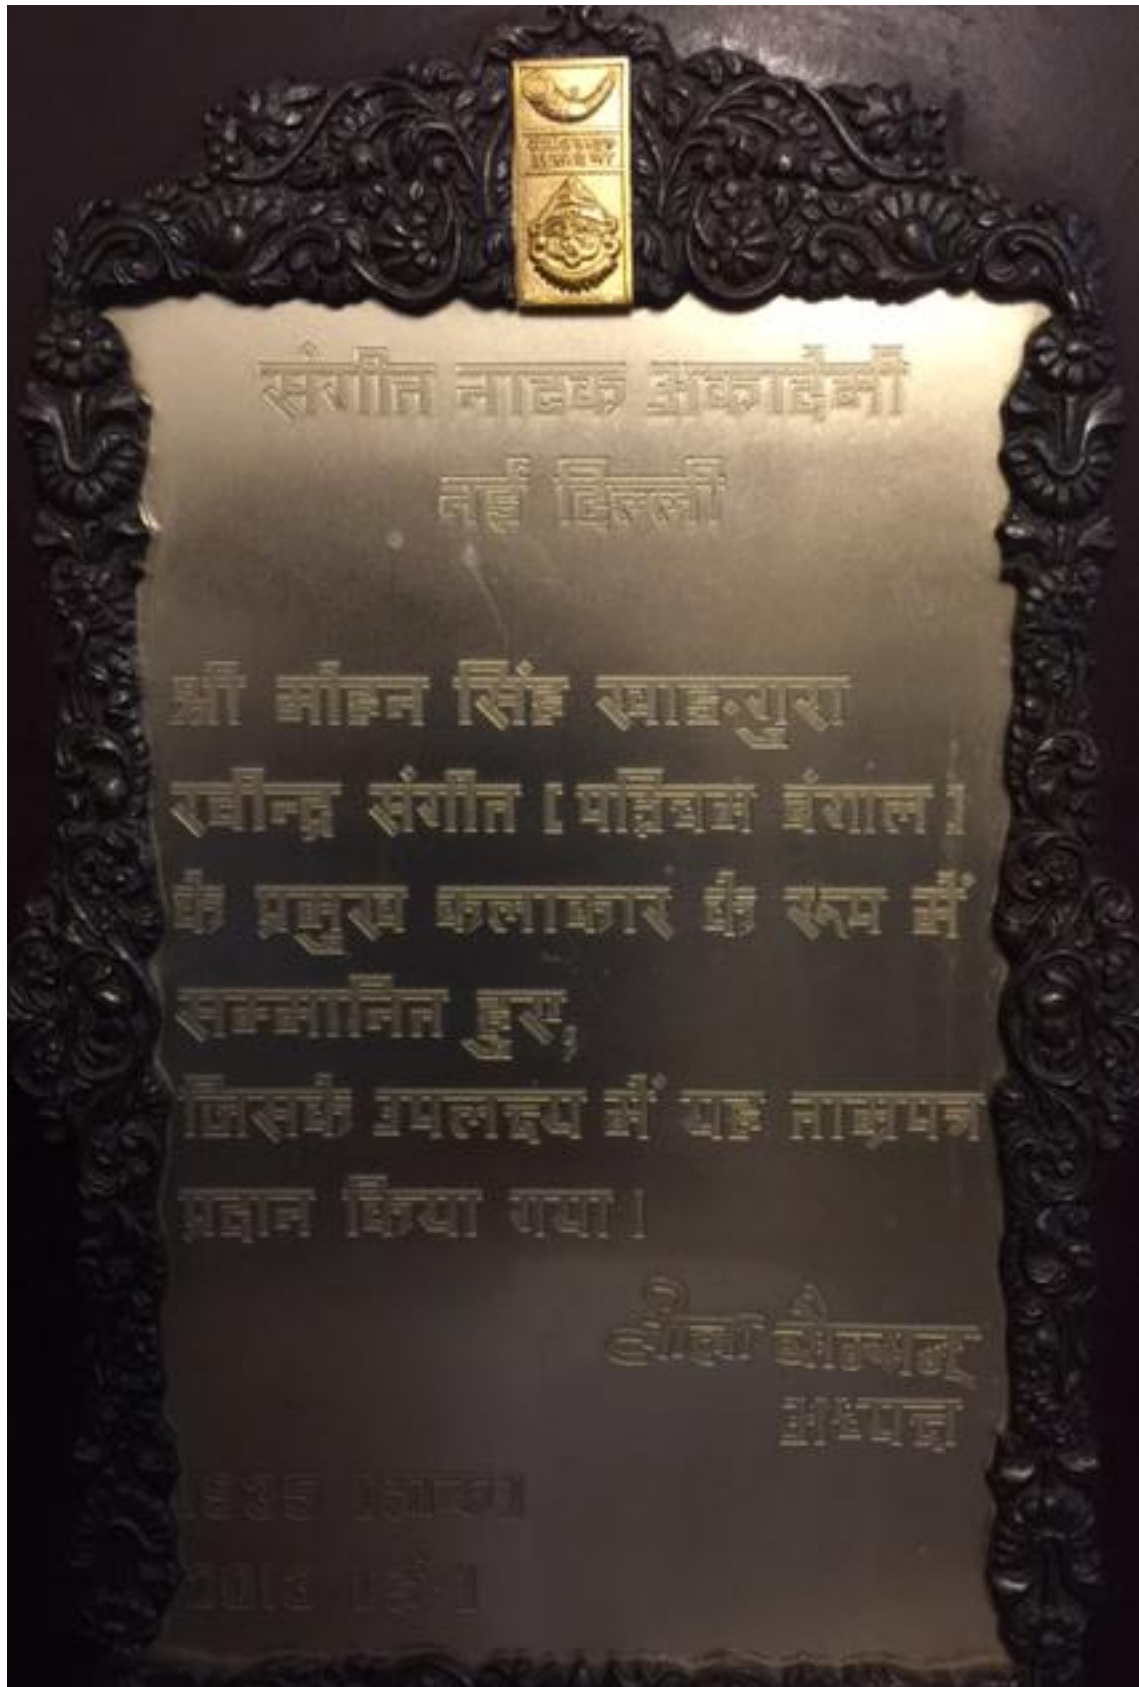 संगीत नाटक अकादेमी
नई दिल्ली
श्री मोहन सिंह खाङन्गुरा
रवीन्द्र संगीत [ पश्चिम बंगाल ]
के प्रमुख कलाकार के रूप में
सम्मानित हुए,
जिसके उपलक्ष्य में यह ताम्रपत्र
प्रदान किया गया।
लीला सैम्सन्
अध्यक्ष
1935 [शक]
2013 [ई॰]